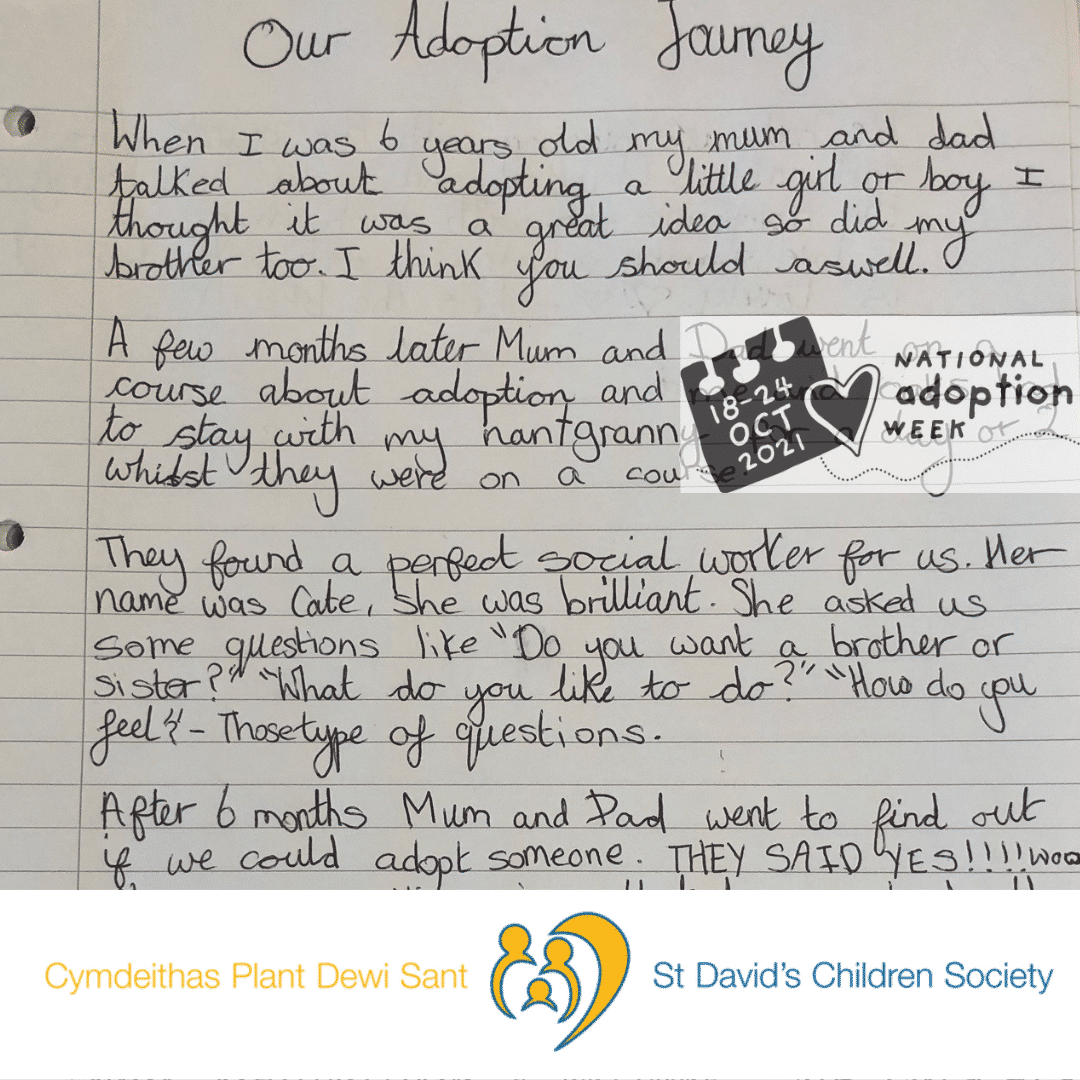 Our Adoption Journey
When I was 6 years old my mum and dad
talked about adopting a little girl or boy I
thought it was a great idea so did my
brother too. I think you should aswell.
A few months later Mum and Dad went on a
course about adoption and me and had
to stay with my nan+granny for a day or 2
whilst they were on a course.
NATIONAL
adoption
WEEK
18-24
OCT
2021
They found a perfect social worker for us. Her
name was Cate, she was brilliant. She asked us
some questions like "Do you want a brother or
sister?" "What do you like to do?" "How do you
feel?" - Thosetype of questions.
After 6 months Mum and Dad went to find out
if we could adopt someone. THEY SAID YES!!!!woo
Cymdeithas Plant Dewi Sant
St David's Children Society